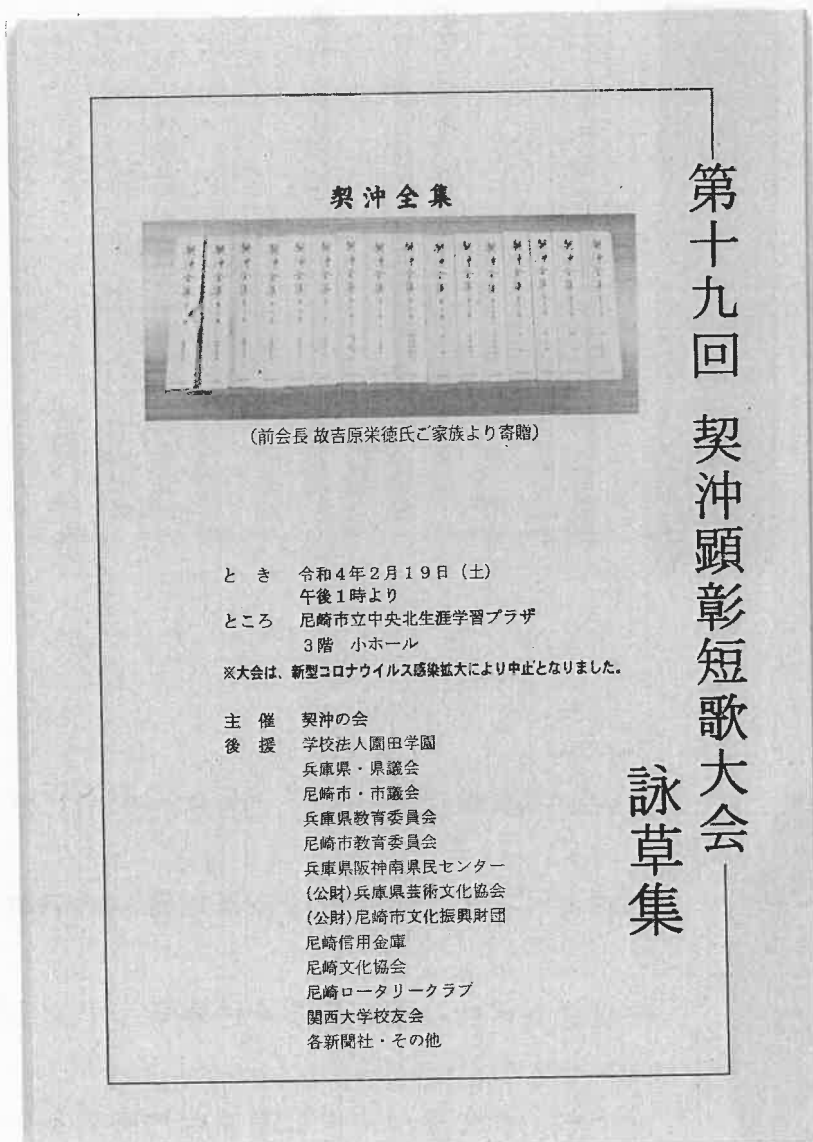 第十九回 契沖顕彰短歌大会
詠草集
契沖全集
(前会長 故吉原栄徳氏ご家族より寄贈)
とき 令和4年2月19日(土)
午後1時より
ところ 尼崎市立中央北生涯学習プラザ
3階 小ホール
※大会は、新型コロナウイルス感染拡大により中止となりました。
主催 契沖の会
後援 学校法人園田学園
兵庫県・県議会
尼崎市・市議会
兵庫県教育委員会
尼崎市教育委員会
兵庫県阪神南県民センター
(公財)兵庫県芸術文化協会
(公財)尼崎市文化振興財団
尼崎信用金庫
尼崎文化協会
尼崎ロータリークラブ
関西大学校友会
各新聞社・その他